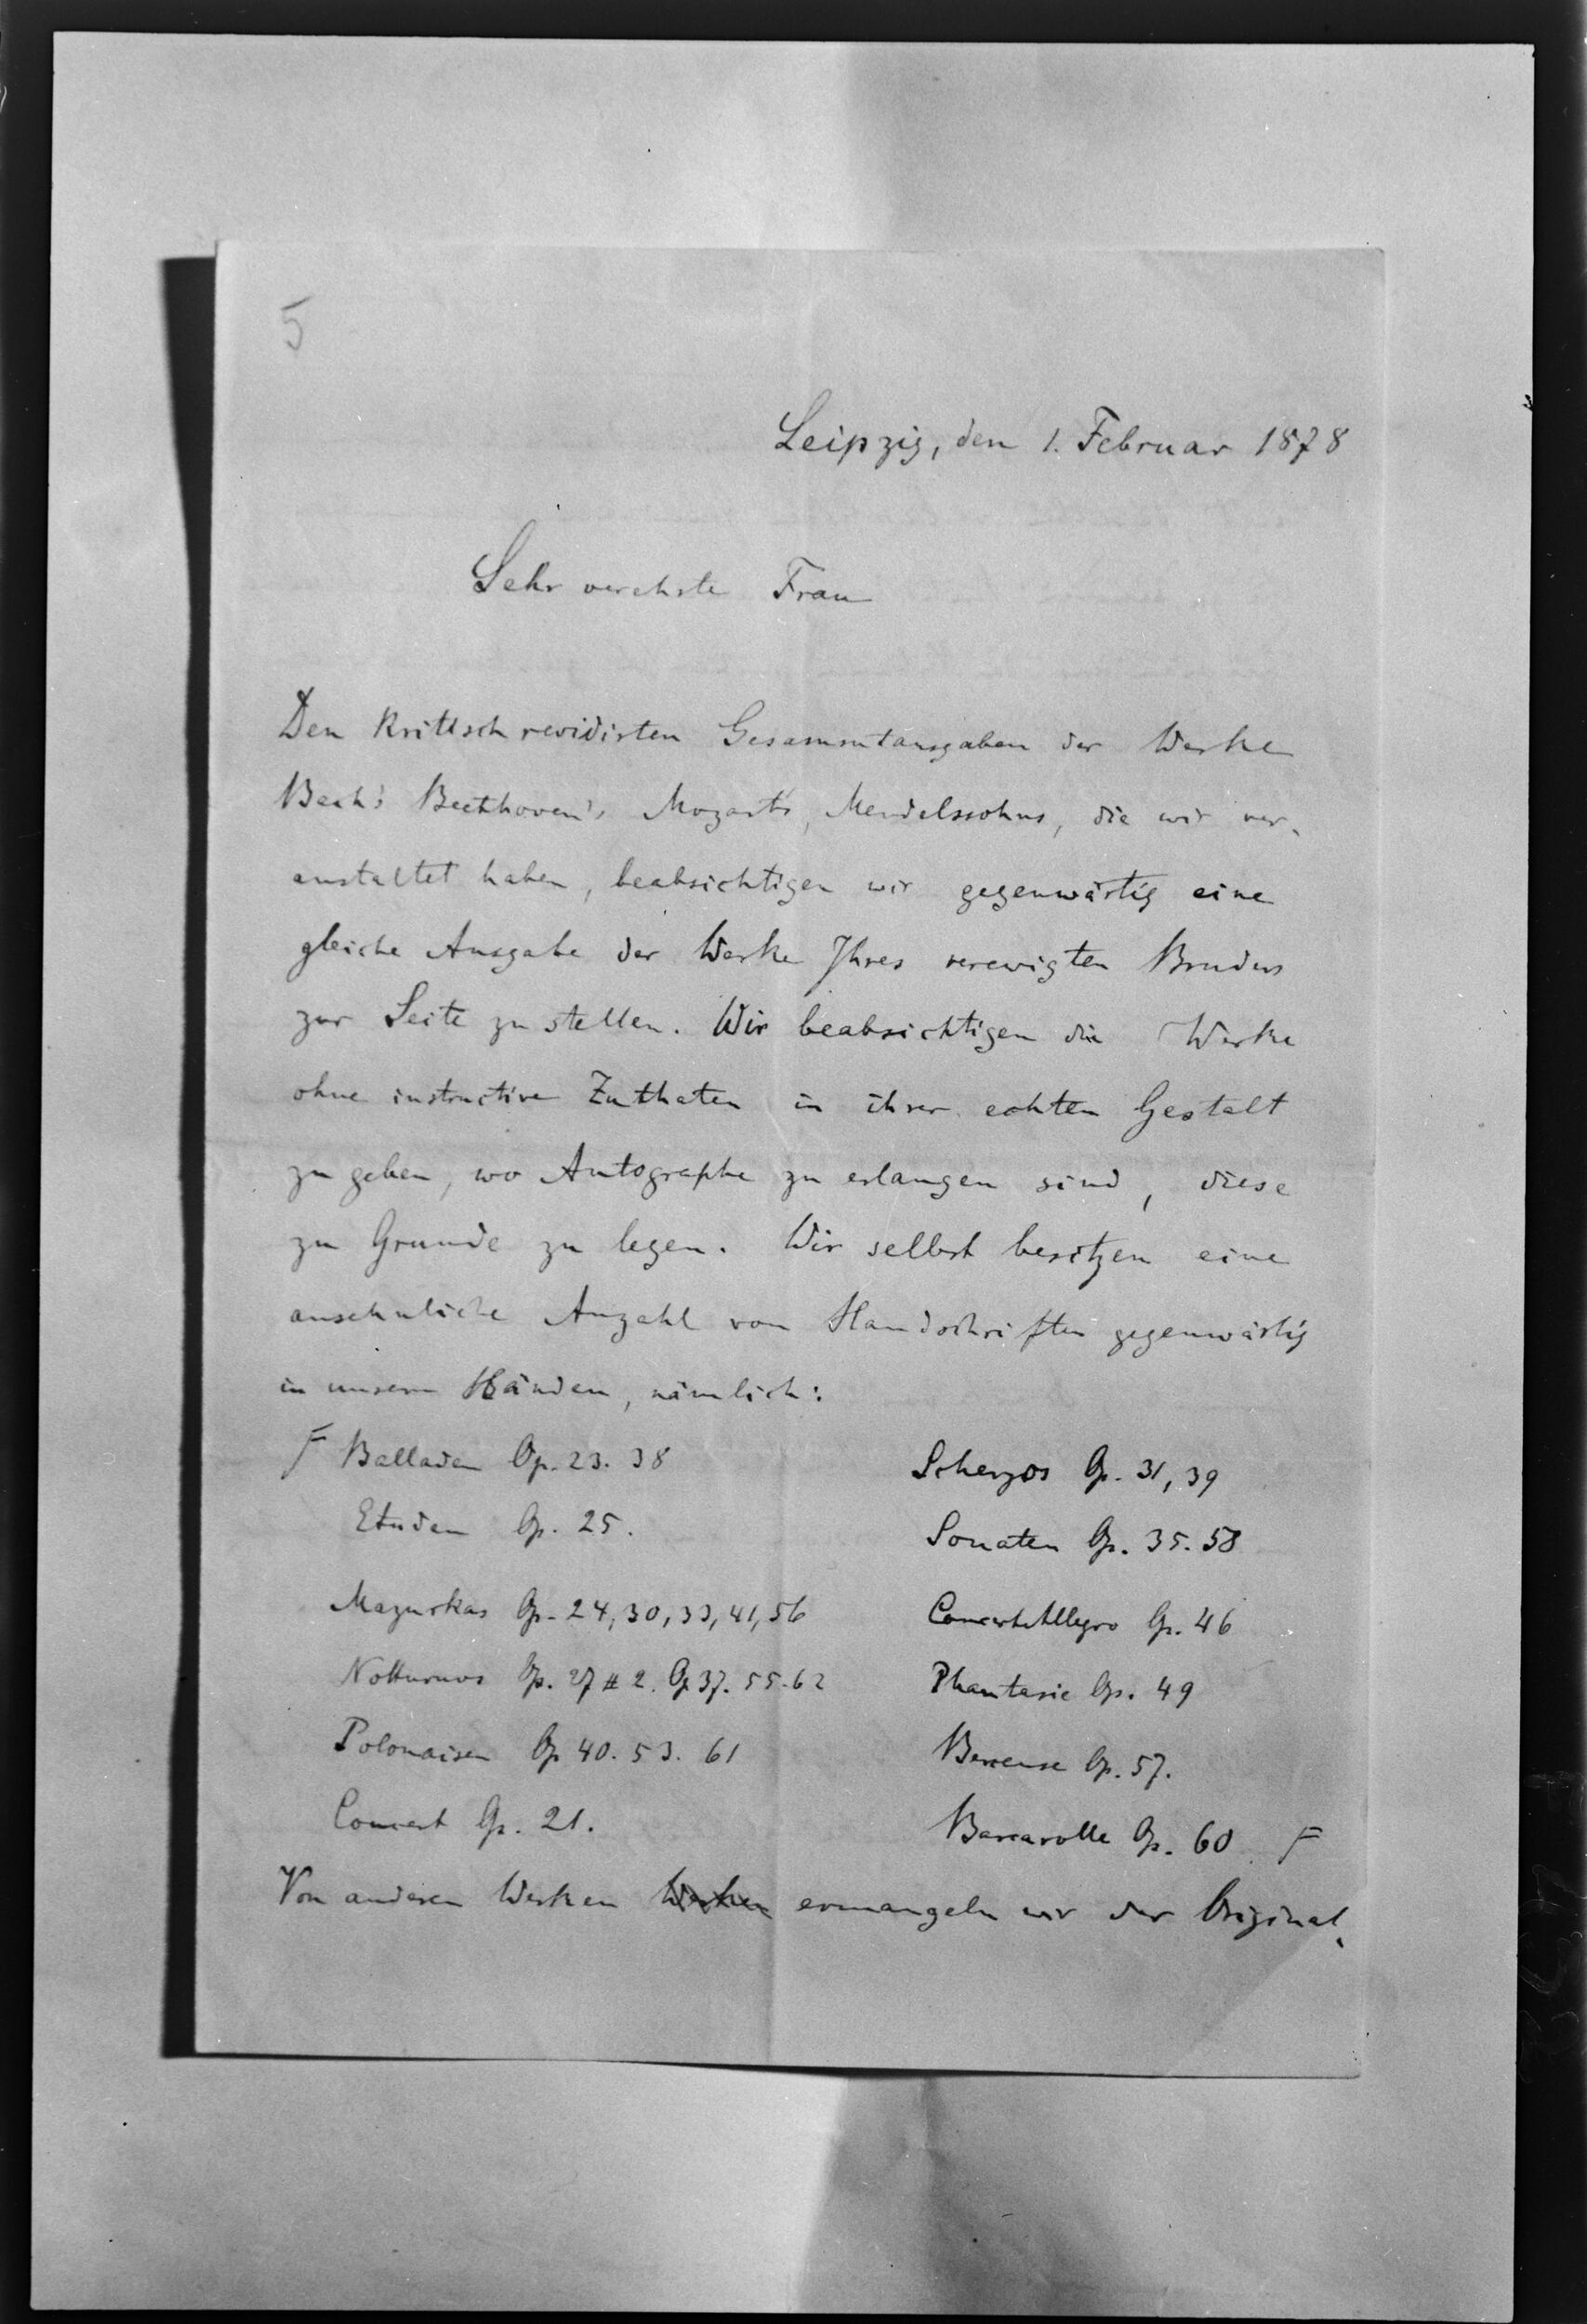 5
Leipzig, den 1. Februar 1878
Sehr verehrte Frau
Den kritisch revidirten Gesammtausgaben der Werke
Bach's Beethoven's Mozarts, Mendelssohns, die wir ver-
anstaltet haben, beabsichtigen wir gegenwärtig eine
gleiche Ausgabe der Werke Ihres verewigten Bruders
zur Seite zu stellen. Wir beabsichtigen die Werke
ohne instructive Zuthaten in ihrer echten Gestalt
zu geben, wo Autographe zu erlangen sind, diese
zu Grunde zu legen. Wir selbst besitzen eine
ansehnliche Anzahl von Handschriften gegenwärtig
in unsern Händen, nämlich:
Balladen Op. 23. 38 Scherzos Op. 31, 39
Etuden Op. 25. Sonaten Op. 35. 58
Mazurkas Op. 24, 30, 33, 41, 56 ConcertAllegro Op. 46
Notturnos Op. 27 # 2. Op 37. 55. 62 Phantasie Op. 49
Polonaisen Op 40. 53. 61 Berceuse Op. 57.
Concert Op. 21. Barcarolle Op. 60
Von anderen Werken Werken ermangeln wir der Original-